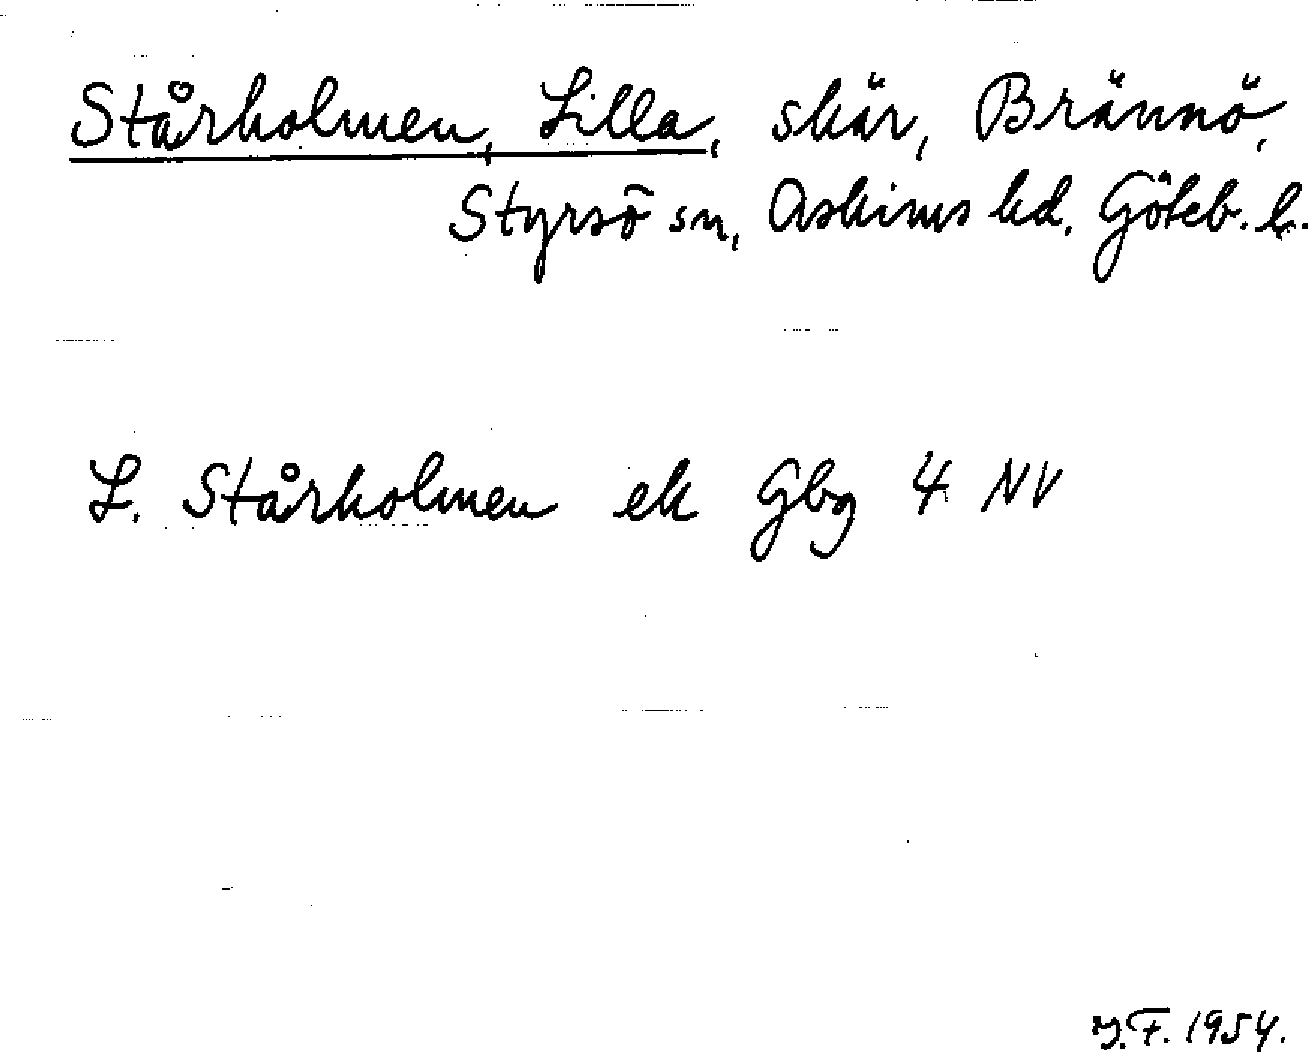 Stårholmen, Lilla, skär, Brännö,
Styrsö sn, Askims hd. Göteb. l.
L. Stårholmen ek Gbg 4 NV
J.F. 1954.